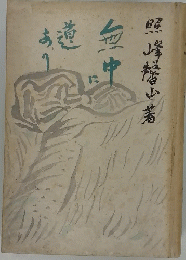 照峰馨山著
無中に
道あり